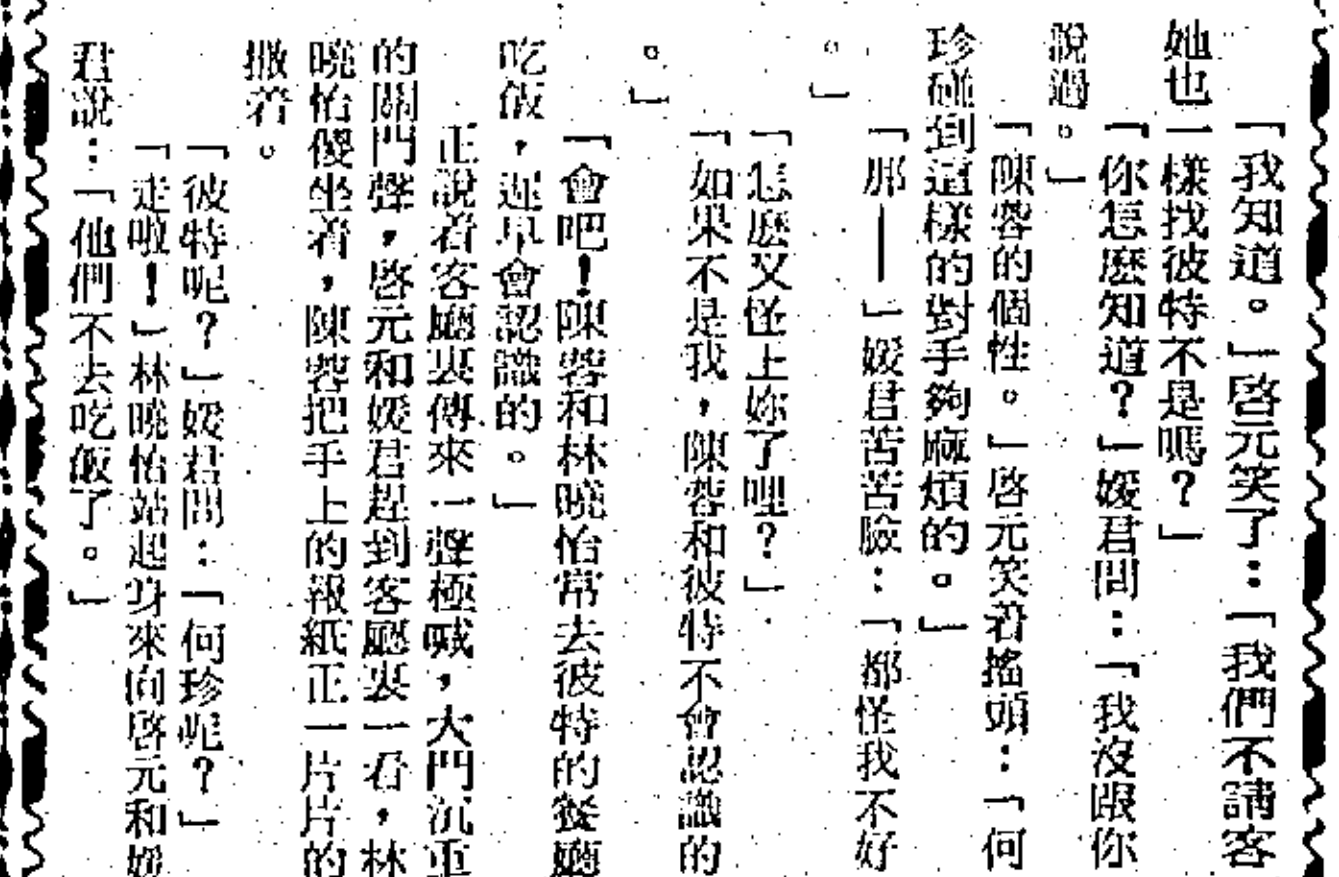 「我知道。」啓元笑了:「我們不請客
她也一樣找彼特不是嗎?」
「你怎麽知道?」媛君問:「我沒跟你
說過。」
「陳蓉的個性。」啓元笑着搖頭:「何
珍碰到這樣的對手夠麻煩的。」
「那——」媛君苦苦臉:「都怪我不好
。」
「怎麽又怪上妳了哩?」
「如果不是我,陳蓉和彼特不會認識的
。」
「會吧!陳蓉和林曉怡常去彼特的餐廳
吃飯,遲早會認識的。」
正說着客廳裏傳來一聲極喊,大門沉重
的關門聲,啓元和媛君趕到客廳裏一看,林
曉怡傻坐着,陳蓉把手上的報紙正一片片的
撒着。
「彼特呢?」媛君問:「何珍呢?」
「走啦!」林曉怡站起身來向啓元和媛
君說:「他們不去吃飯了。」